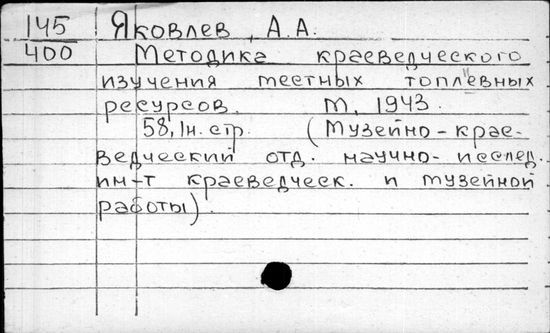 145 Яковлев, А.А.
400 Методика краеведческого
изучения местных топливных
ресурсов. М, 1943.
58,1н.стр. (Музейно-крае-
ведческий отд. научно-исслед.
ин-т краеведческ. и музейной
работы).